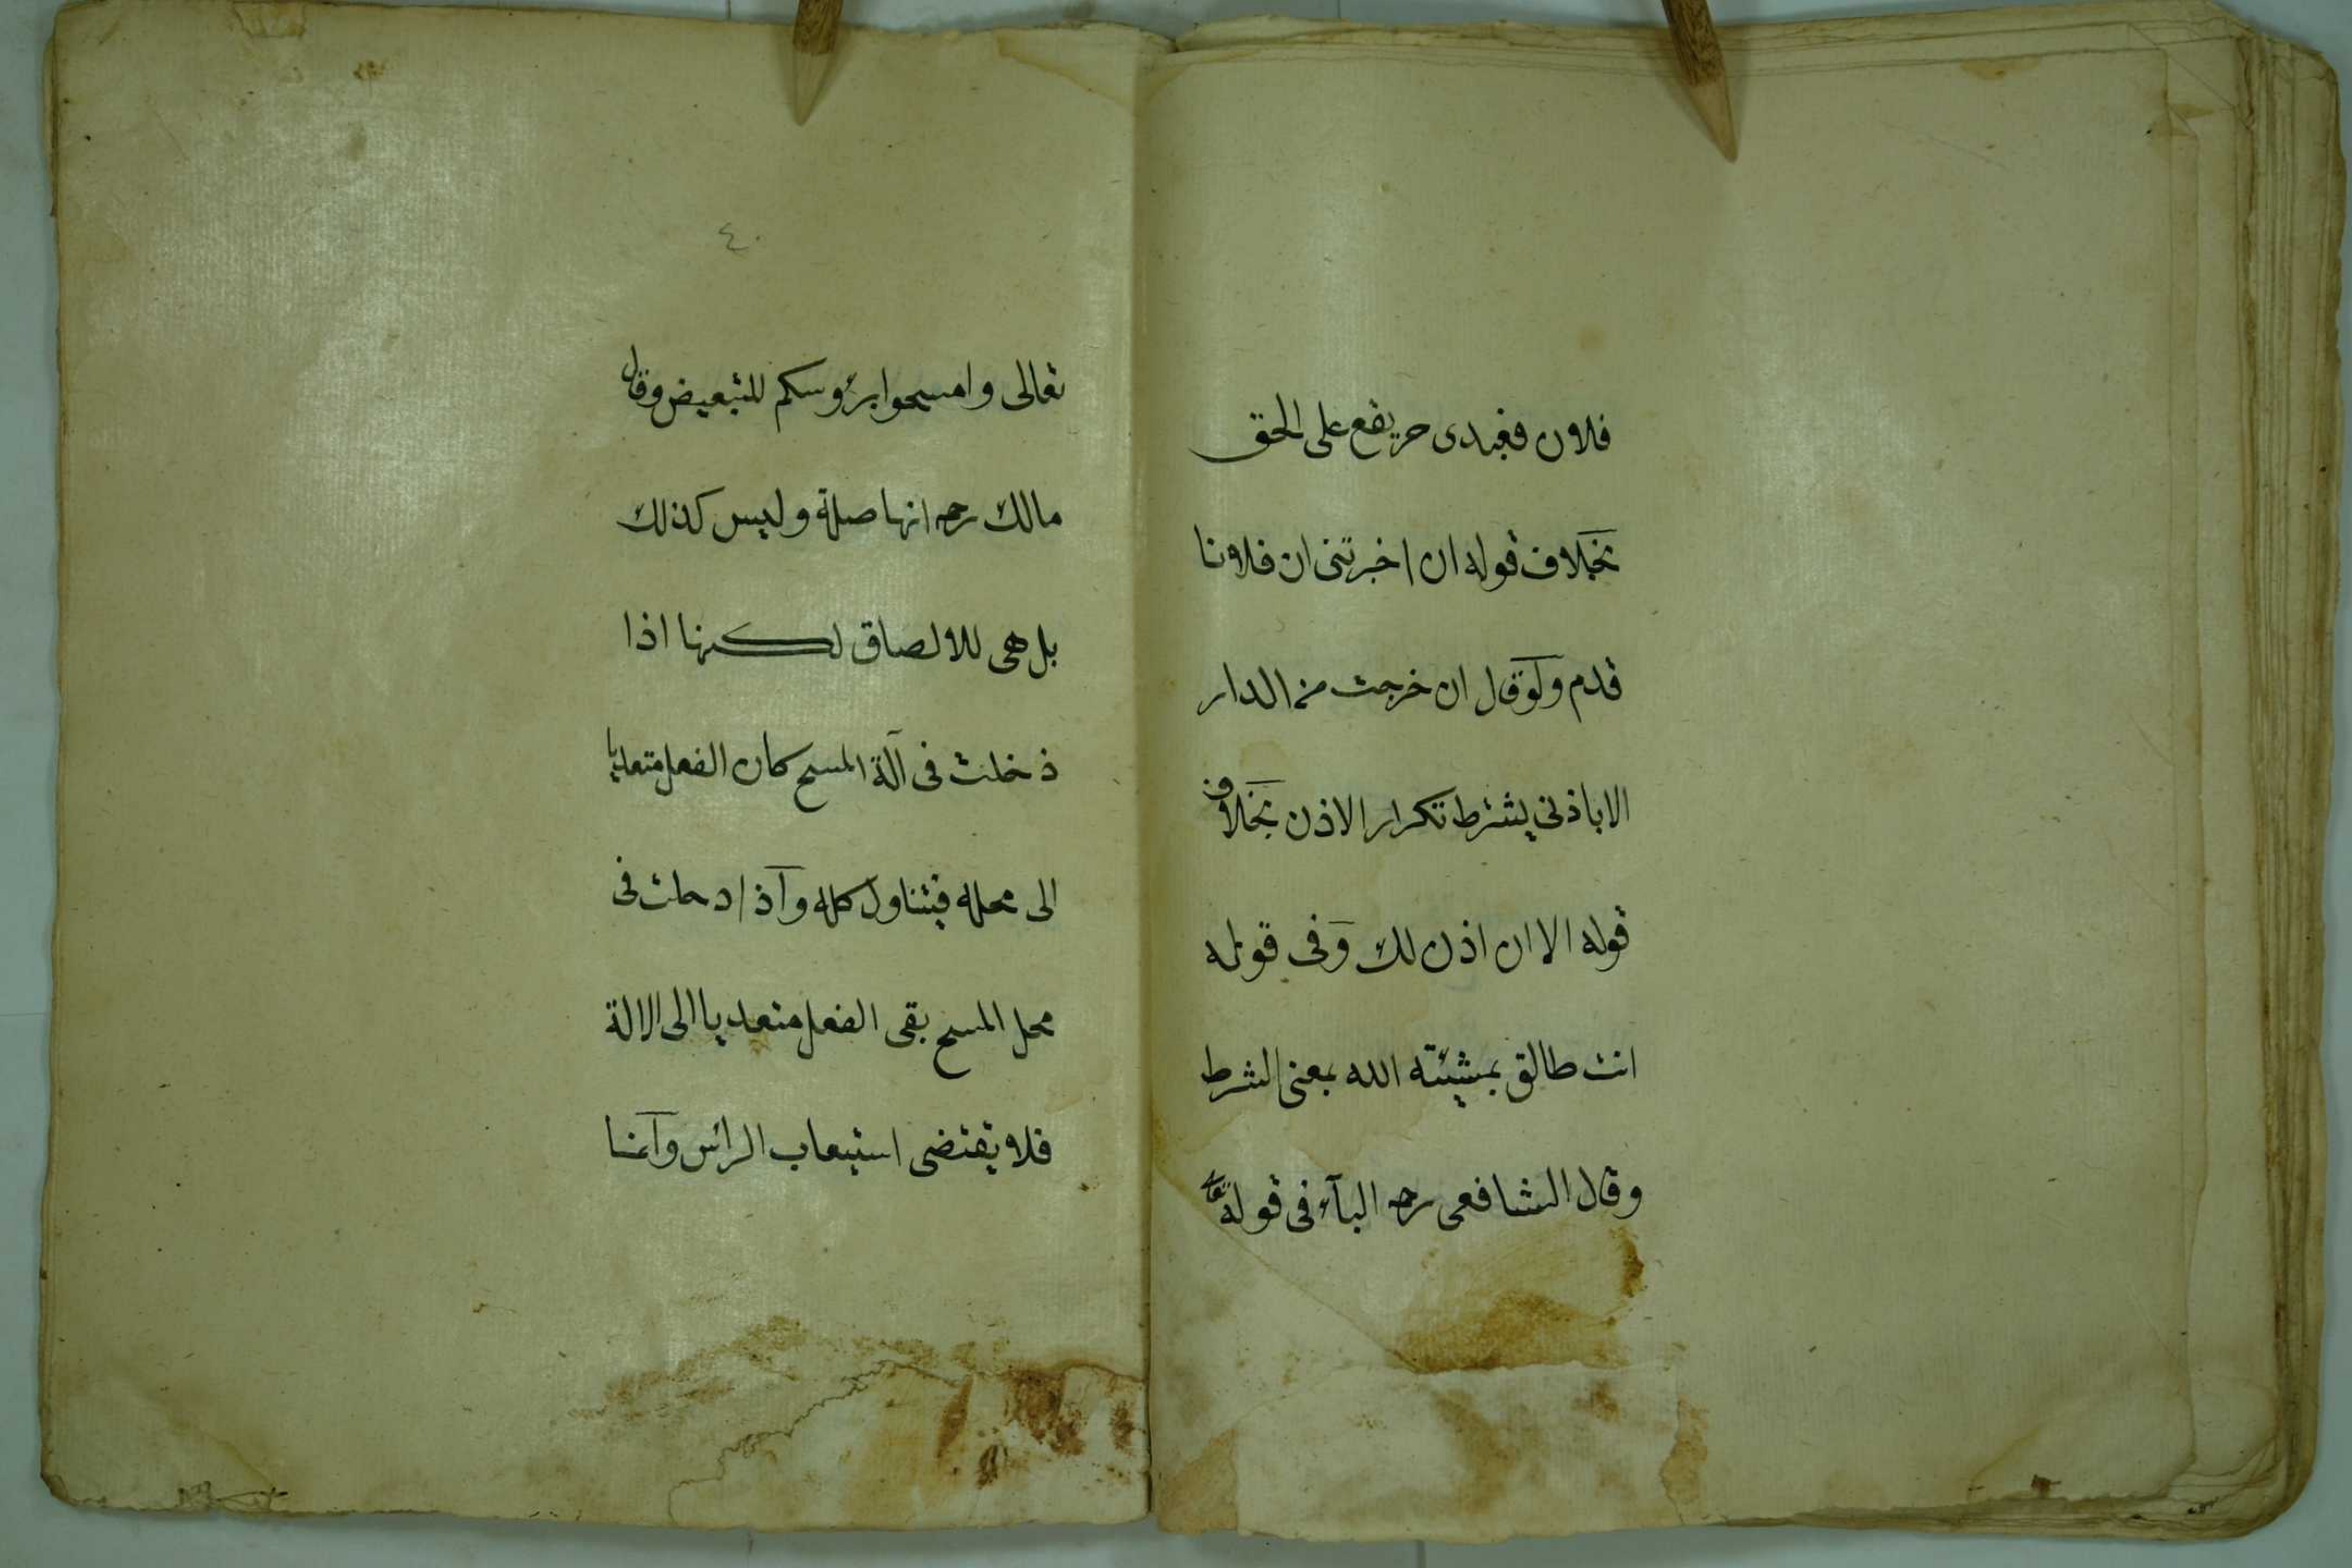 فلان فعبدى حر يقع على الحق
بخلاف قوله ان اخبرتنى ان فلانا
قدم ولو قال ان خرجت من الدار
الا باذنى يشترط تكرار الاذن بخلاف
قوله الا ان اذن لك وفى قوله
انت طالق بمشيئته الله بمعنى الشرط
وقال الشافعى رحـ البآء فى قوله تعا
٤٠
تعالى وامسحوا برؤوسكم للتبعيض وقال
مالك رحـ انها صلة وليس كذلك
بل هى للالصاق لكنها اذا
دخلت فى آلة المسح كان الفعل متعديا
الى محله فيتناول كله واذا دخلت فى
محل المسح بقى الفعل متعديا الى الالة
فلا يقتضى استيعاب الرأس وانما